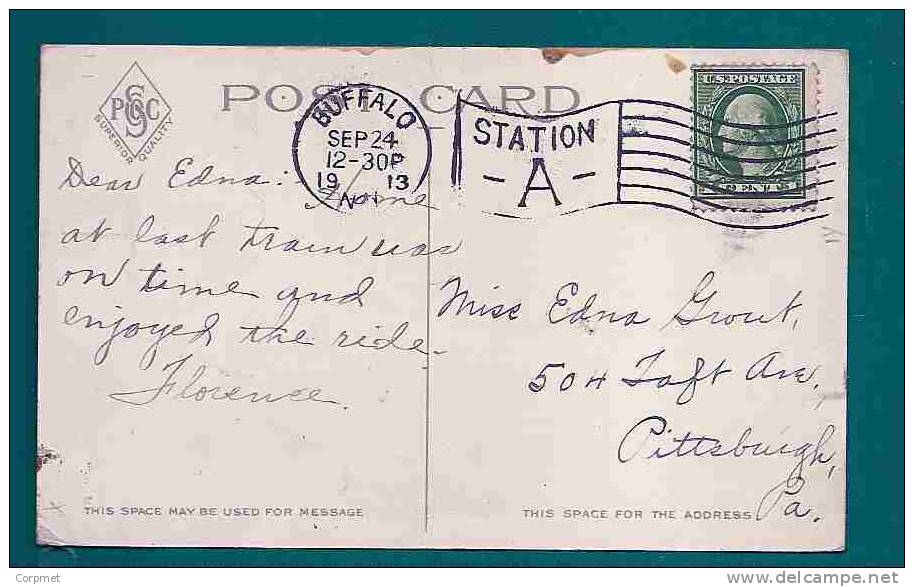 PSCC
SUPERIOR QUALITY
POST CARD
BUFFALO
SEP 24
12-30P
1913
N.Y.
STATION
- A -
U.S. POSTAGE
Dear Edna: Home
at last train was
on time and
enjoyed the ride.
Florence.
Miss Edna Grout,
504 Taft Ave,
Pittsburgh,
Pa.
THIS SPACE MAY BE USED FOR MESSAGE
THIS SPACE FOR THE ADDRESS
Corpmet
delcampe.net